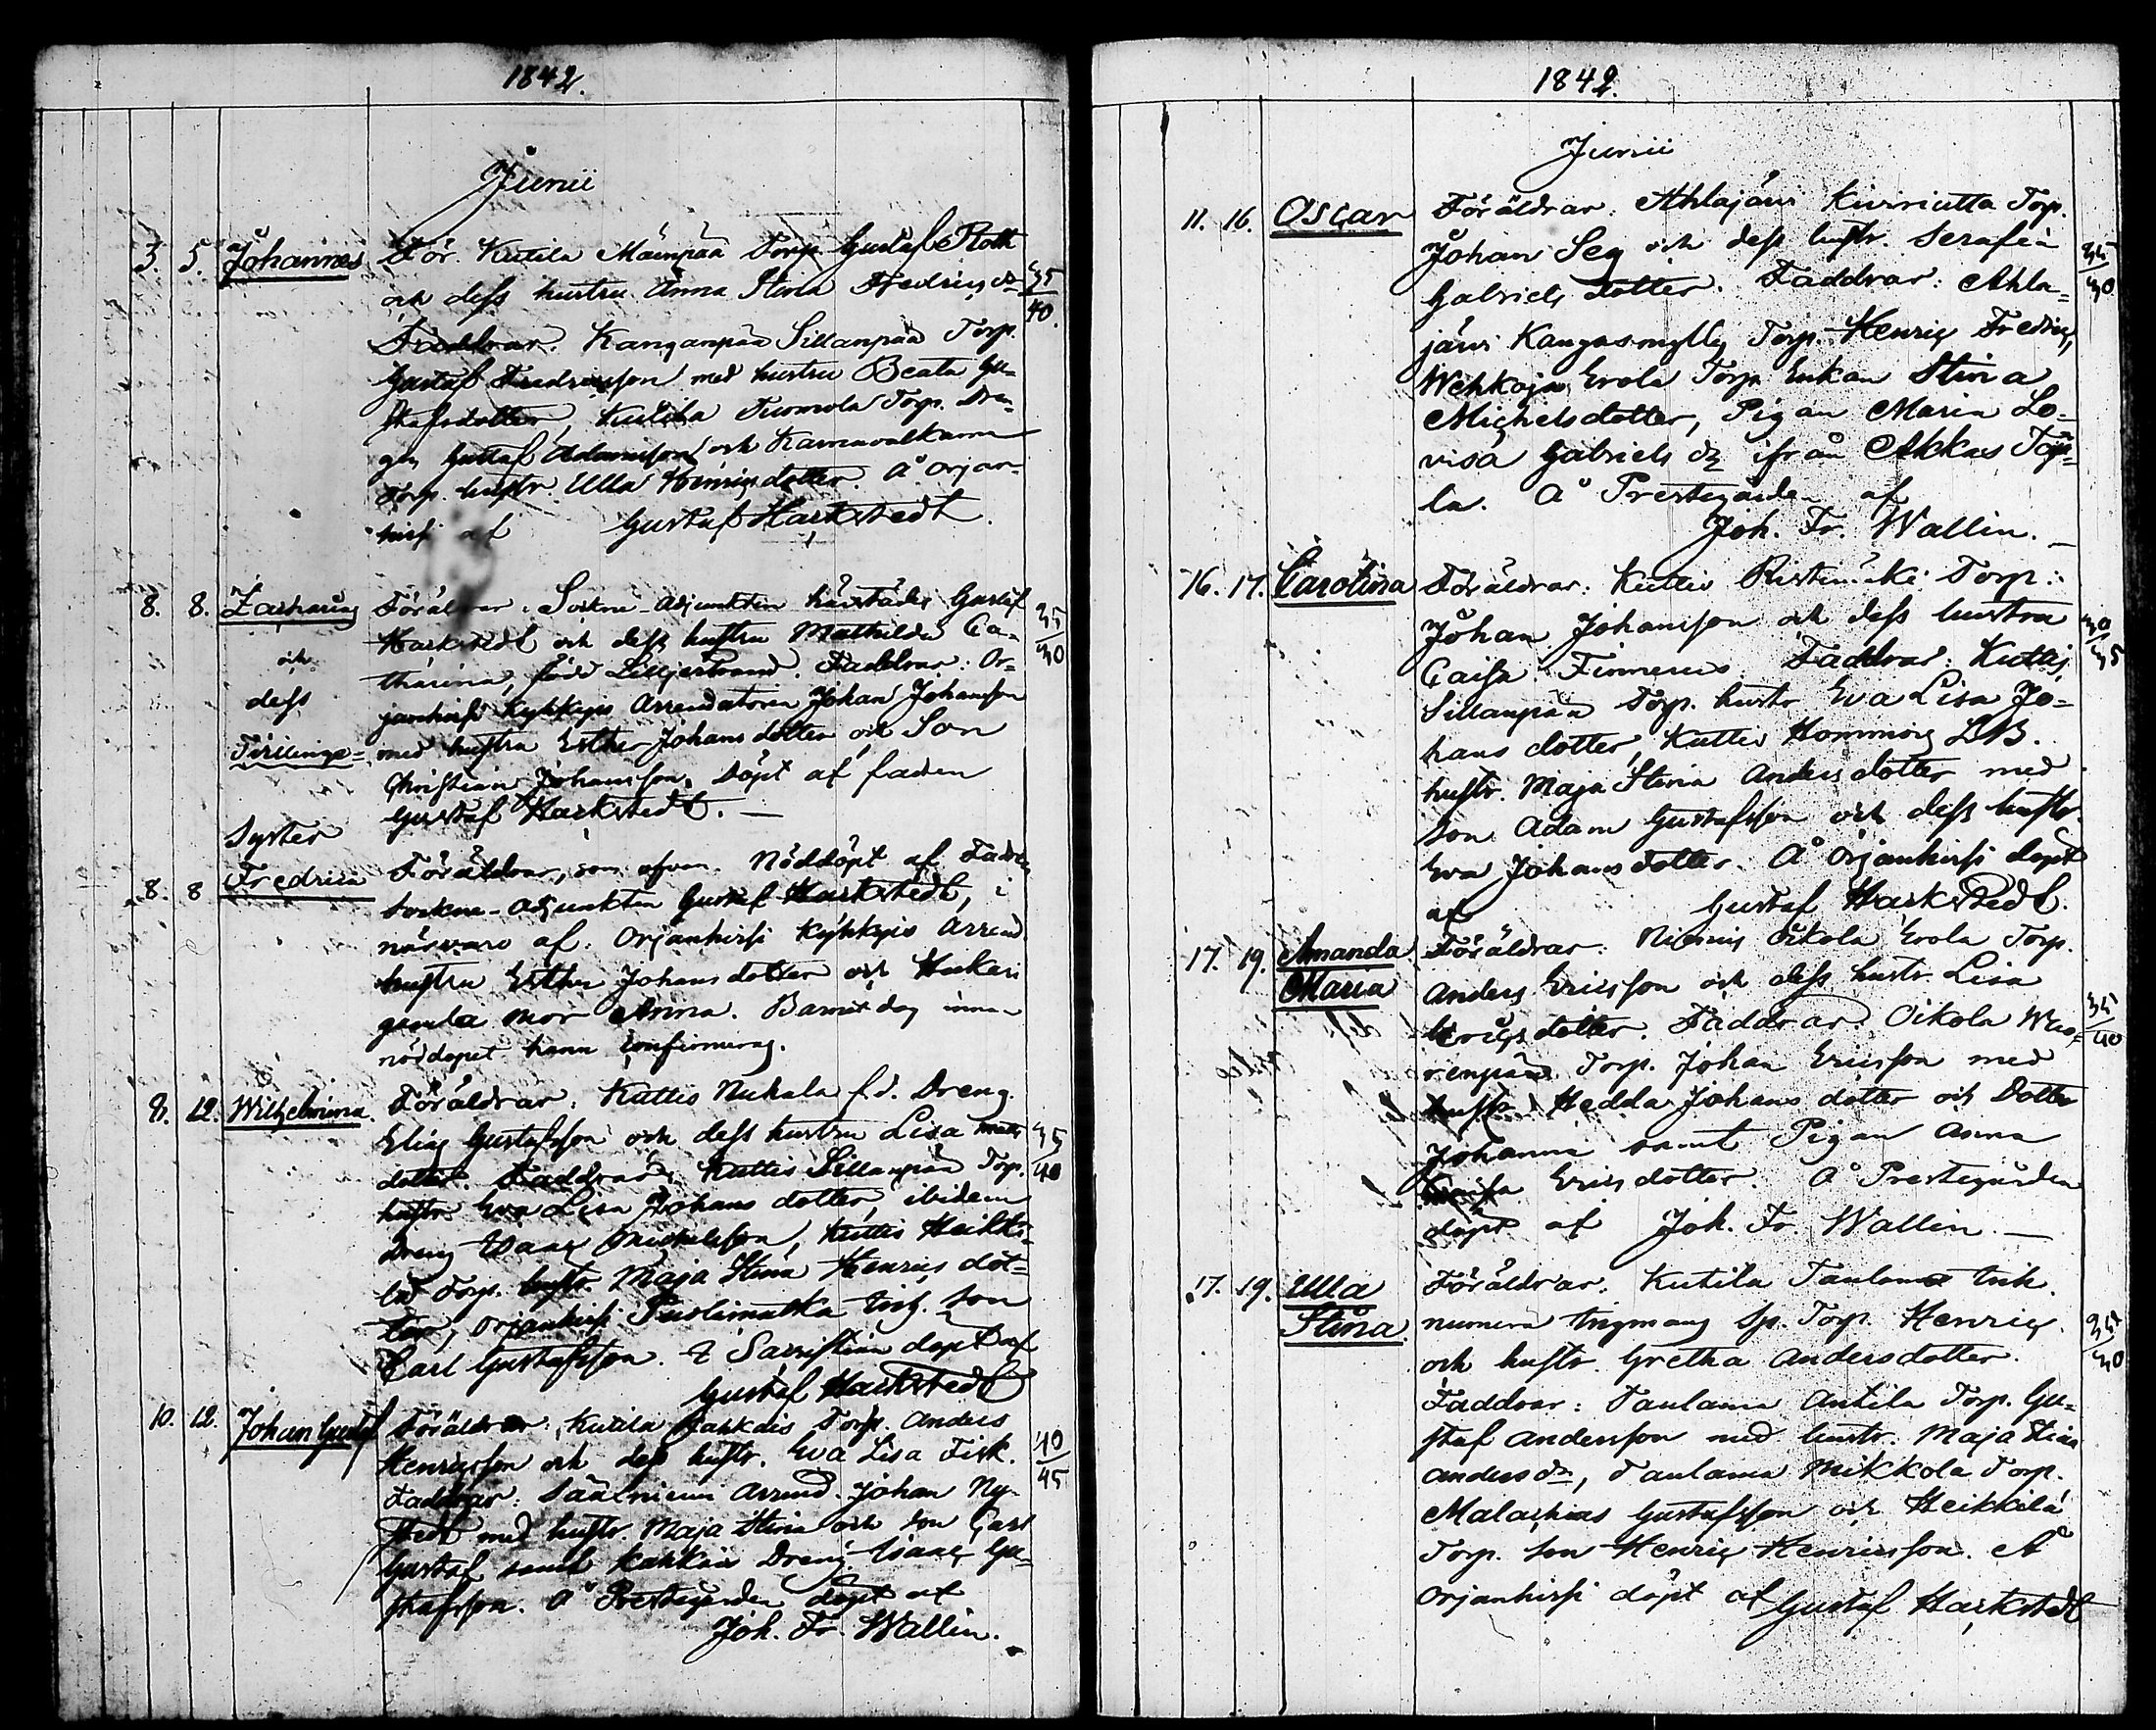 1842.
Junii
3. 5. Johannes För. Kutila Mäenpää Torp. Gustaf Roth
och dess hustru Anna Stina Fredrics dr 35/40.
Faddrar. Kanganpää Sillanpää Torp.
Gustaf Fredricsson med hustru Beata Gu=
stafsdotter, Kutila Tuomola Torp. Dren=
gen Gustaf Adamsson och
Torp. hustr. Ulla Henricsdotter. Å Orjan=
hirfi af Gustaf Harkstedt.
8. 8. Zacharias Föräldrar: Sockne-Adjunkten härstädes Gustaf 35/40
och Harkstedt och dess hustru Mathilda Ca=
tharina, född Lilljestrand. Faddrar: Or=
dess janhirfi Kyhkyis Arrendatoren Johan Johansson
Tvillinge= med hustru Esther Johans dotter och Son
Christian Johansson. Döpt af fadern
Gustaf Harkstedt. —
Syster
Fredrica Föräldrar, som ofvan. Nöddöpt af Fadren
8. 8 Sockne-Adjunkten Gustaf Harkstedt, i
närvaro af: Orjanhirfi Kyhkyis Arrend.
hustru Esther Johans dotter och Huhkari
gamla mor Anna. Barnet dog innan
nöddopet hann confirmeras.
8. 12. Wilhelmina. Föräldrar: Kuttis Nuhala f.d. Dreng
Elias Gustafsson och dess hustru Lisa Matts 35/40
dotter. Faddrar: Kuttis Sillanpää Torp.
hustr. Eva Lisa Johans dotter, ibidem
Dreng Isaac Michelsson, Kuttis Heikki=
lä Torp. hustr. Maja Stina Henrics dot=
ter, Orjanhirfi Puolimatka Torp. Son
Carl Gustafsson. I Sacristian döpt af
Gustaf Harkstedt
10. 12. Johan Gustaf Föräldrar: Kutila Torp. Anders
Henricsson och dess hustr. Eva Lisa Fisk. 40/45
Faddrar: Säälniemi Arrend. Johan Ny=
stedt med hustr. Maja Stina och Son Carl
Gustaf samt Kahkiä Dreng Isaac Gu=
stafsson. Å Prestegården döpt af
Joh. Fr. Wallin.
1842.
Junii
11. 16. Oscar Föräldrar: Ahlajärvi Kivirintta Torp.
Johan Seg och dess hustr. Serafia 35/40
Gabriels dotter. Faddrar: Ahla=
järvi Kangasmylly Torp. Henric Fredrics,
Wehkoja Erola Torp. Enkan Stina
Michelsdotter, Pigan Maria Lo=
visa Gabriels dr ifrån Akkas Toja=
la. Å Prestegården af
Joh. Fr. Wallin. —
16. 17. Carolina Föräldrar: Kuttis Ristimäki Torp:
Johan Johansson och dess hustru 40/45
Caisa Finnerus. Faddrar: Kuttis
Sillanpää Torp. hustr Eva Lisa Jo=
hans dotter, Kuttis Hommois LB.
hustr. Maja Stina Anders dotter med
Son Adam Gustafsson och dess hustr.
Eva Johansdotter. Å Orjanhirfi döpt
af Gustaf Harkstedt.
17. 19. Amanda Föräldrar: Niemis Oikola Erola Torp.
Maria Anders Ericsson och dess hustr. Lisa
Erics dotter. Faddrar: Oikola Wuo= 35/40
renpää Torp. Johan Ericsson med
hustr. Hedda Johans dotter och Dotter
Johanna samt Pigan Anna
Erics dotter. Å Prestegården
döpt af Joh. Fr. Wallin. —
17. 19. Ulla Föräldrar: Kutila Taulama Inh.
Stina. numera Ingmans Sp. Torp. Henric 35/40
och hustr. Gretha Andersdotter.
Faddrar: Taulama Antila Torp. Gu=
staf Andersson med hustr. Maja Stina
Anders dr, Taulama Mikkola Torp.
Malachias Gustafsson och Heikkilä
Torp. Son Henric Henricsson. Å
Orjanhirfi döpt af Gustaf Harkstedt